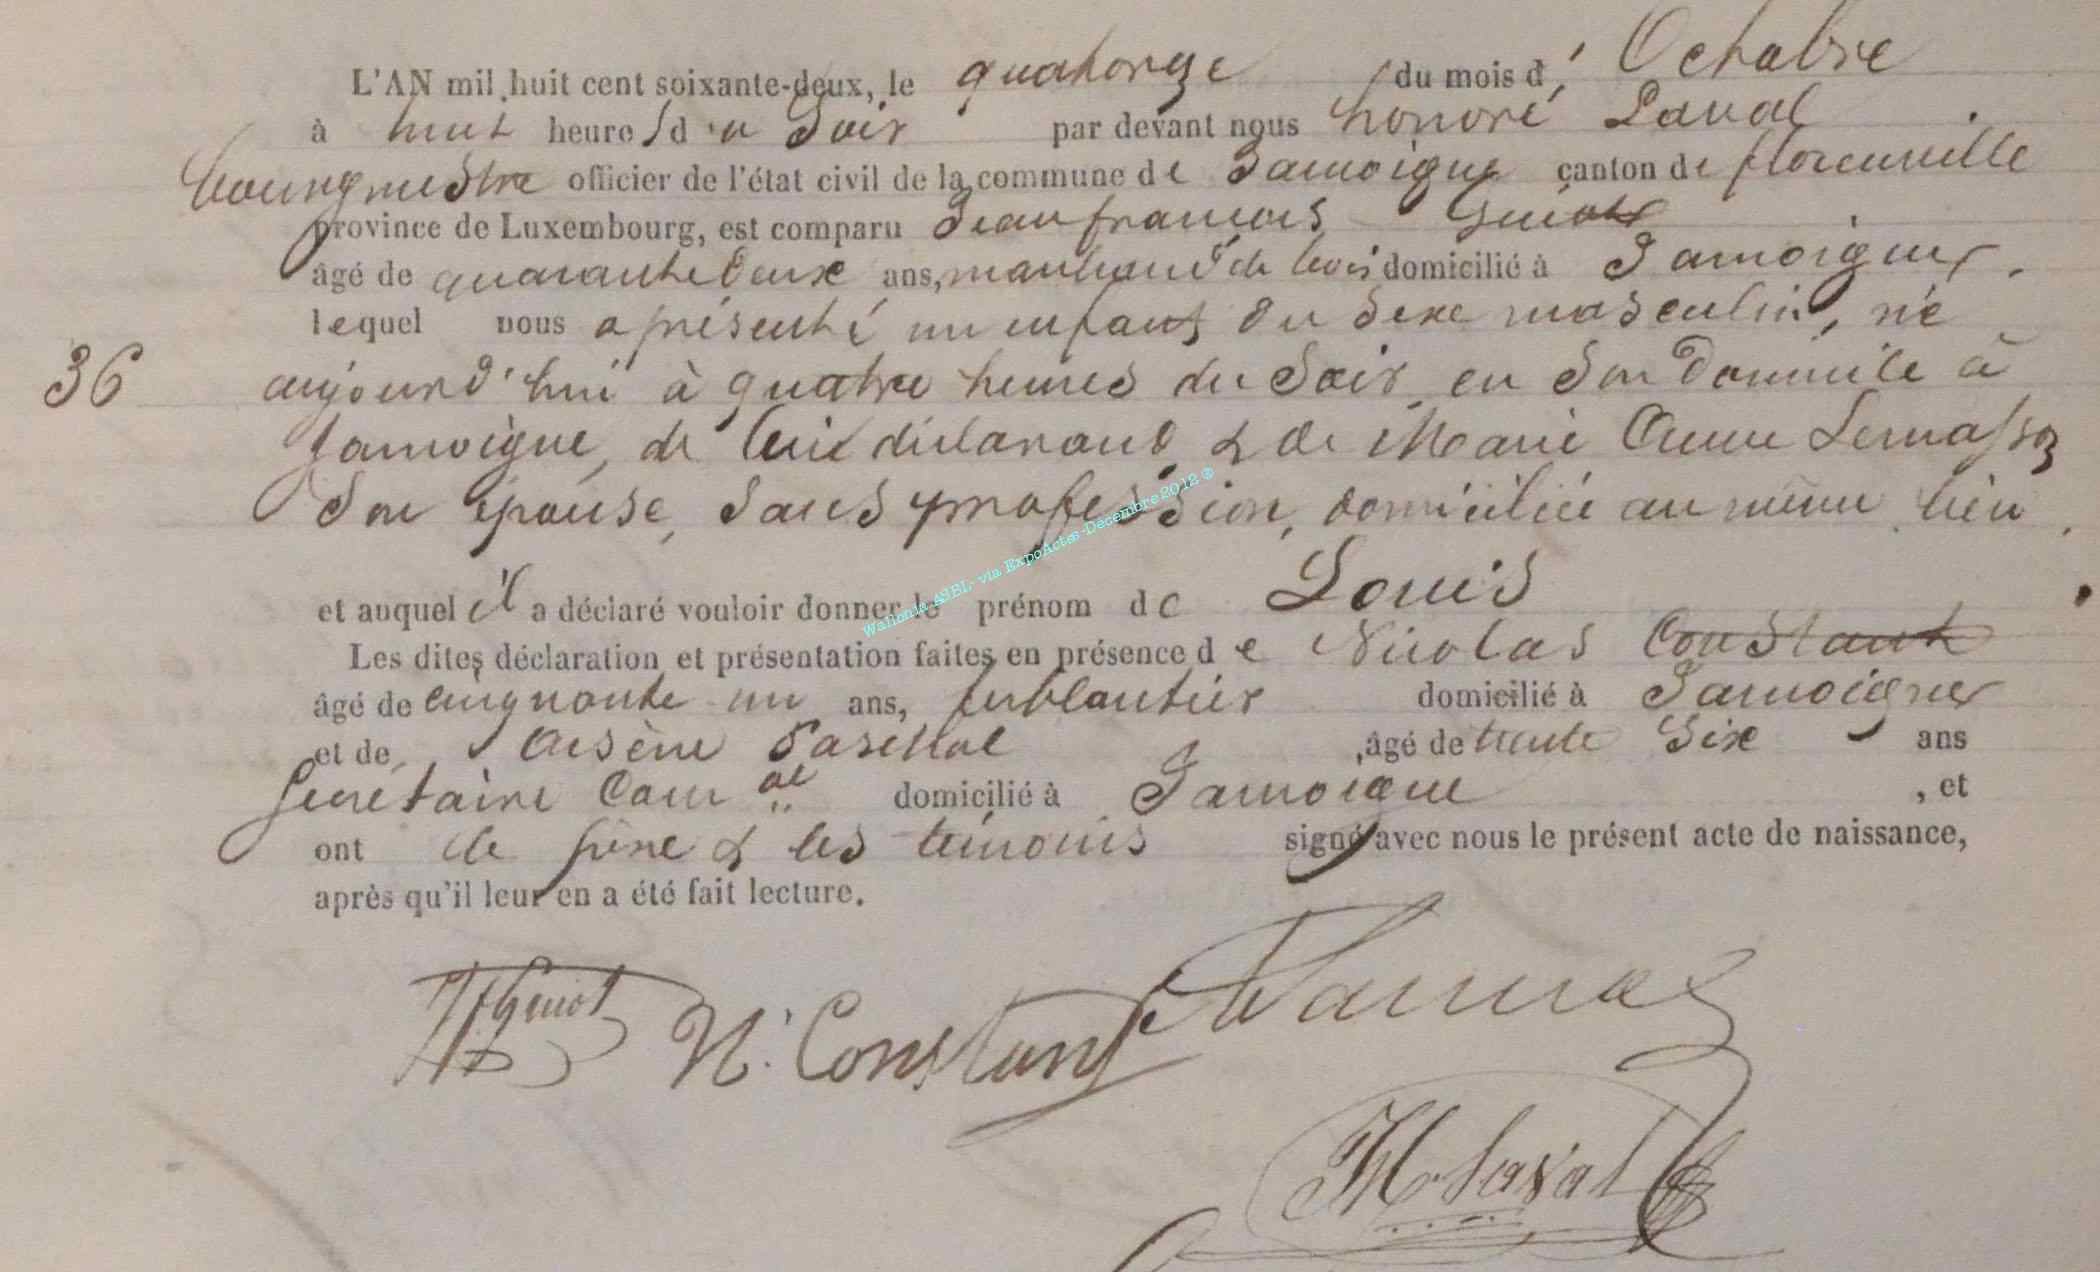 L'AN mil huit cent soixante-deux, le quatorze du mois d'Octobre
à huit heures du Soir par devant nous honoré Laval
bourgmestre officier de l'état civil de la commune de Jamoigne canton de florenville
province de Luxembourg, est comparu Jean françois Guiot
âgé de quarante deux ans, marchand de bois domicilié à Jamoigne,
lequel nous a présenté un enfant du Sexe masculin, né
36 aujourd'hui à quatre heures du Soir en Son domicile à
Jamoigne, de lui déclarant & de Marie Anne Lemasson
Son épouse, Sans profession, domiciliée au même lieu.
et auquel il a déclaré vouloir donner le prénom de Louis
Les dites déclaration et présentation faites en présence de Nicolas Constant
âgé de cinquante un ans, ferblantier domicilié à Jamoigne
et de Arsène, âgé de trente Six ans
Secrétaire Com al domicilié à Jamoigne, et
ont le père & les témoins signé avec nous le présent acte de naissance,
après qu'il leur en a été fait lecture.
Guiot N. Constant
H. Laval
Wallonia ASBL via ExpoActes-Decembre 2012 ®